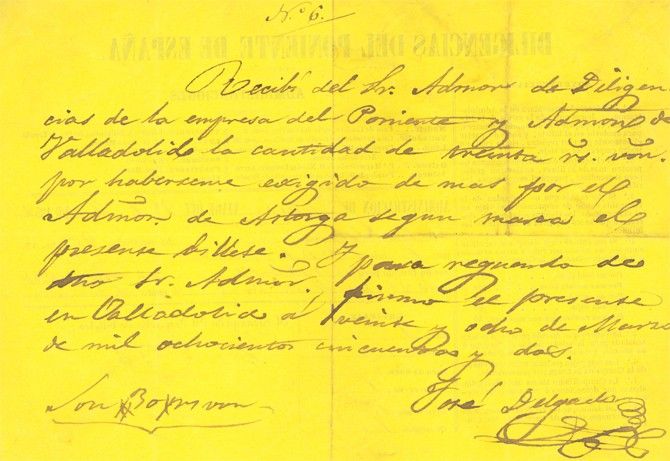 N.º 6.
DILIGENCIAS DEL PONIENTE DE ESPAÑA
Recibí del Sr. Admor de Diligen
cias de la empresa del Poniente y Admon de
Valladolid la cantidad de treinta rs. von.
por haberseme exigido de mas por el
Admor. de Astorga segun marca el
presente billete. Y para reguardo de
dho Sr. Admor. firmo el presente
en Valladolid a veinte y ocho de Marzo
de mil ochocientos cincuenta y dos.
Son 30 rs von
José Delgado